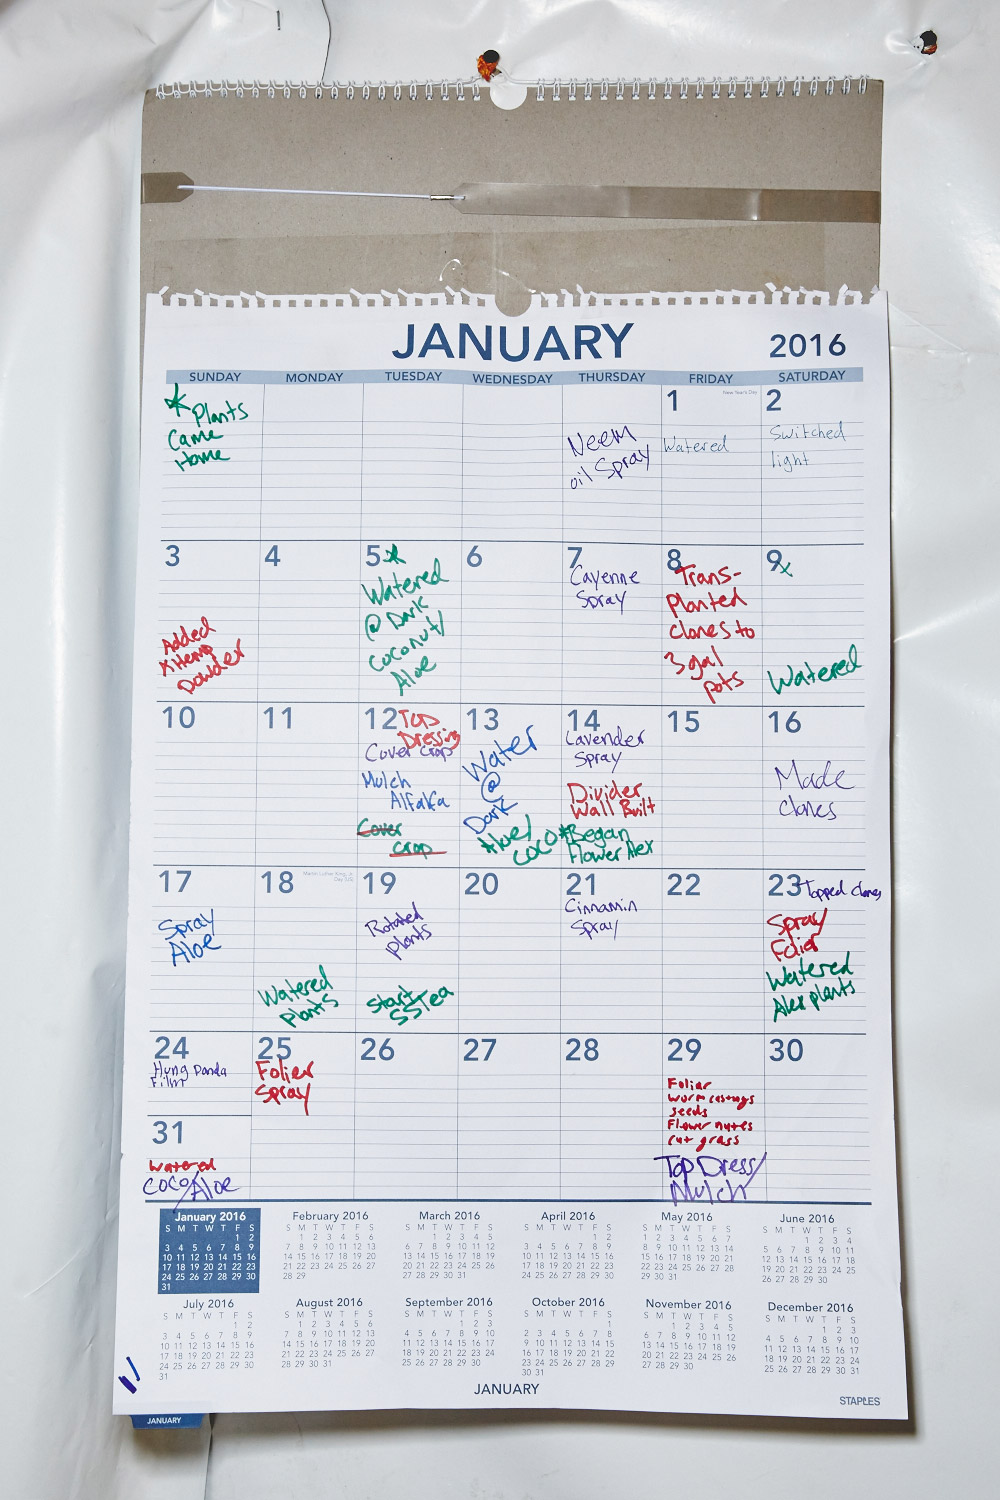 JANUARY
2016
SUNDAY MONDAY TUESDAY WEDNESDAY THURSDAY FRIDAY SATURDAY
Plants
Came
Home
Neem
oil Spray
1
New Year's Day
Watered
2
Switched
light
3
Added
Powder
4
5
Watered
@ Dark
Coconut/
Aloe
6
7
Cayenne
Spray
8
Trans-
Planted
clones to
3 gal
pots
9
Watered
10
11
12
Top
Dressing
Cover Crops
Mulch
Alfalfa
Cover
crop
13
Water
@
Dark
Aloe/
Coco
14
Lavender
Spray
Divider
Wall Built
Began
Flower Alex
15
16
Made
clones
17
Spray
Aloe
18
Martin Luther King, Jr.
Day (US)
Watered
Plants
19
Rotated
plants
Start
SSTea
20
21
Cinnamin
Spray
22
23
Topped clones
Spray
Folier
Watered
Alex plants
24
Hung Panda
Film
25
Folier
Spray
26
27
28
29
Foliar
worm castings
seeds
Flower nutes
cut grass
Top Dress/
Mulch
30
31
Watered
COCO/Aloe
January 2016
S M T W T F S
1 2
3 4 5 6 7 8 9
10 11 12 13 14 15 16
17 18 19 20 21 22 23
24 25 26 27 28 29 30
31
February 2016
S M T W T F S
1 2 3 4 5 6
7 8 9 10 11 12 13
14 15 16 17 18 19 20
21 22 23 24 25 26 27
28 29
March 2016
S M T W T F S
1 2 3 4 5
6 7 8 9 10 11 12
13 14 15 16 17 18 19
20 21 22 23 24 25 26
27 28 29 30 31
April 2016
S M T W T F S
1 2
3 4 5 6 7 8 9
10 11 12 13 14 15 16
17 18 19 20 21 22 23
24 25 26 27 28 29 30
May 2016
S M T W T F S
1 2 3 4 5 6 7
8 9 10 11 12 13 14
15 16 17 18 19 20 21
22 23 24 25 26 27 28
29 30 31
June 2016
S M T W T F S
1 2 3 4
5 6 7 8 9 10 11
12 13 14 15 16 17 18
19 20 21 22 23 24 25
26 27 28 29 30
July 2016
S M T W T F S
1 2
3 4 5 6 7 8 9
10 11 12 13 14 15 16
17 18 19 20 21 22 23
24 25 26 27 28 29 30
31
August 2016
S M T W T F S
1 2 3 4 5 6
7 8 9 10 11 12 13
14 15 16 17 18 19 20
21 22 23 24 25 26 27
28 29 30 31
September 2016
S M T W T F S
1 2 3
4 5 6 7 8 9 10
11 12 13 14 15 16 17
18 19 20 21 22 23 24
25 26 27 28 29 30
October 2016
S M T W T F S
1
2 3 4 5 6 7 8
9 10 11 12 13 14 15
16 17 18 19 20 21 22
23 24 25 26 27 28 29
30 31
November 2016
S M T W T F S
1 2 3 4 5
6 7 8 9 10 11 12
13 14 15 16 17 18 19
20 21 22 23 24 25 26
27 28 29 30
December 2016
S M T W T F S
1 2 3
4 5 6 7 8 9 10
11 12 13 14 15 16 17
18 19 20 21 22 23 24
25 26 27 28 29 30 31
JANUARY
STAPLES
JANUARY